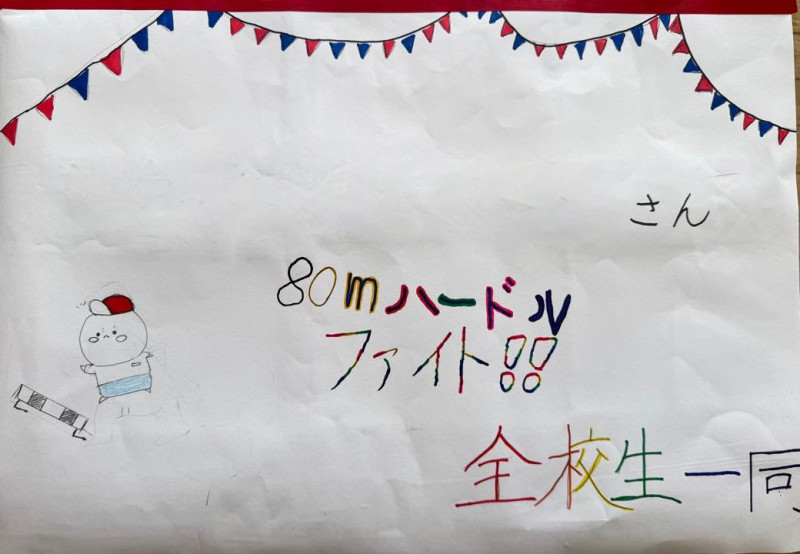 さん
80mハードル
ファイト!!
全校生一同